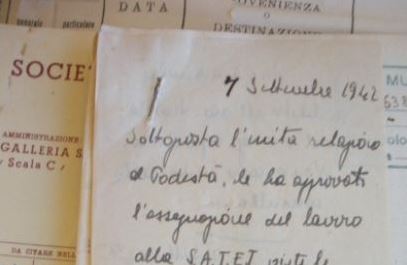 generale particolare
DATA
PROVENIENZA
O
DESTINAZIONE
SOCIE
AMMINISTRAZIONE
GALLERIA S
Scala C
DA CITARE NELL
MU
7 Settembre 1942
Sottoposta l'unita relazione
al Podestà, le ha approvato
l'assegnazione del lavoro
alla S.A.T.E.T. viste le